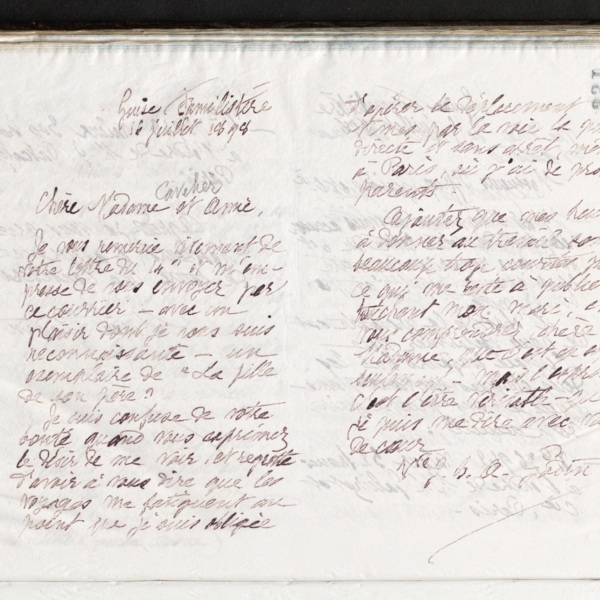 Guise Familistère
16 Juillet 1898
Cavelier
Chère Madame et Amie,
Je vous remercie vivement de
votre lettre du 14 et m'em-
presse de vous envoyer par
ce courrier – avec un
plaisir dont je vous suis
reconnaissante – un
exemplaire de "La fille
de son père"
Je suis confuse de votre
bonté quand vous exprimez
le désir de me voir, et regrette
d'avoir à vous dire que les
voyages me fatiguent au
point que je suis obligée
d'opérer le déplacement
par la voie la plus
directe et sans arrêt même
à Paris, où j'ai de
parents.
Ajoutez que mes
à donner au travail sont
beaucoup trop
ce qui me reste à publier
touchant mon mari,
vous comprendrez, chère
Madame, que c'est
mais
c'est l'être
je puis me dire avec
de cœur
Vve J. B. A. Godin